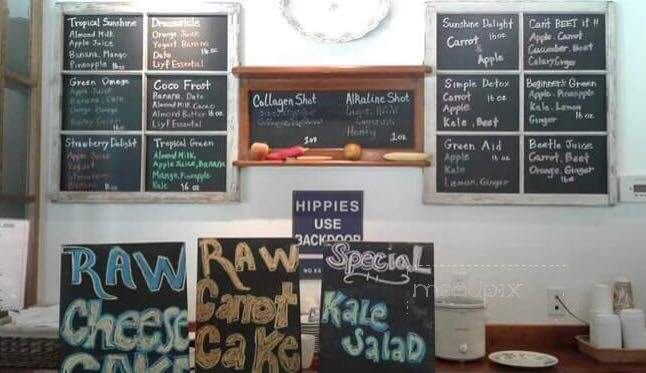 Tropical Sunshine
Almond Milk
Apple Juice
Banana, Mango
Pineapple 16 oz
Dreamsicle
Orange Juice
Yogurt, Banana
Date 16 oz
Lyf Essential
Green Omega
Apple Juice
Banana, Date
16 oz
Coco Frost
Banana, Date
Almond Milk Cacao
Almond Butter 16 oz
Lyf Essential
Strawberry Delight
Apple Juice
Yogurt
Strawberry
Banana 16 oz
Tropical Green
Almond Milk
Apple Juice, Banana
Mango, Pineapple
Kale 16 oz
Collagen Shot
1oz
Alkaline Shot
Honey 1oz
Sunshine Delight
16 oz
Carrot
&
Apple
Can't BEET it!!
Apple, Carrot
Cucumber, Beet
Celery Ginger
Simple Detox
Carrot 16 oz
Apple
Kale, Beet
Beginner's Green
Apple, Pineapple
Kale, Lemon
Ginger 16 oz
Green Aid
Apple 16 oz
Kale
Lemon, Ginger
Beetle Juice
Carrot, Beet
Orange, Ginger
16 oz
HIPPIES
USE
BACKDOOR
RAW
Cheese
CAKE
RAW
Carrot
Cake
Special
Kale
Salad
menupix